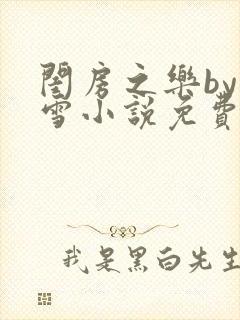 閨房之樂by
雪小說免費
我是黑白先生